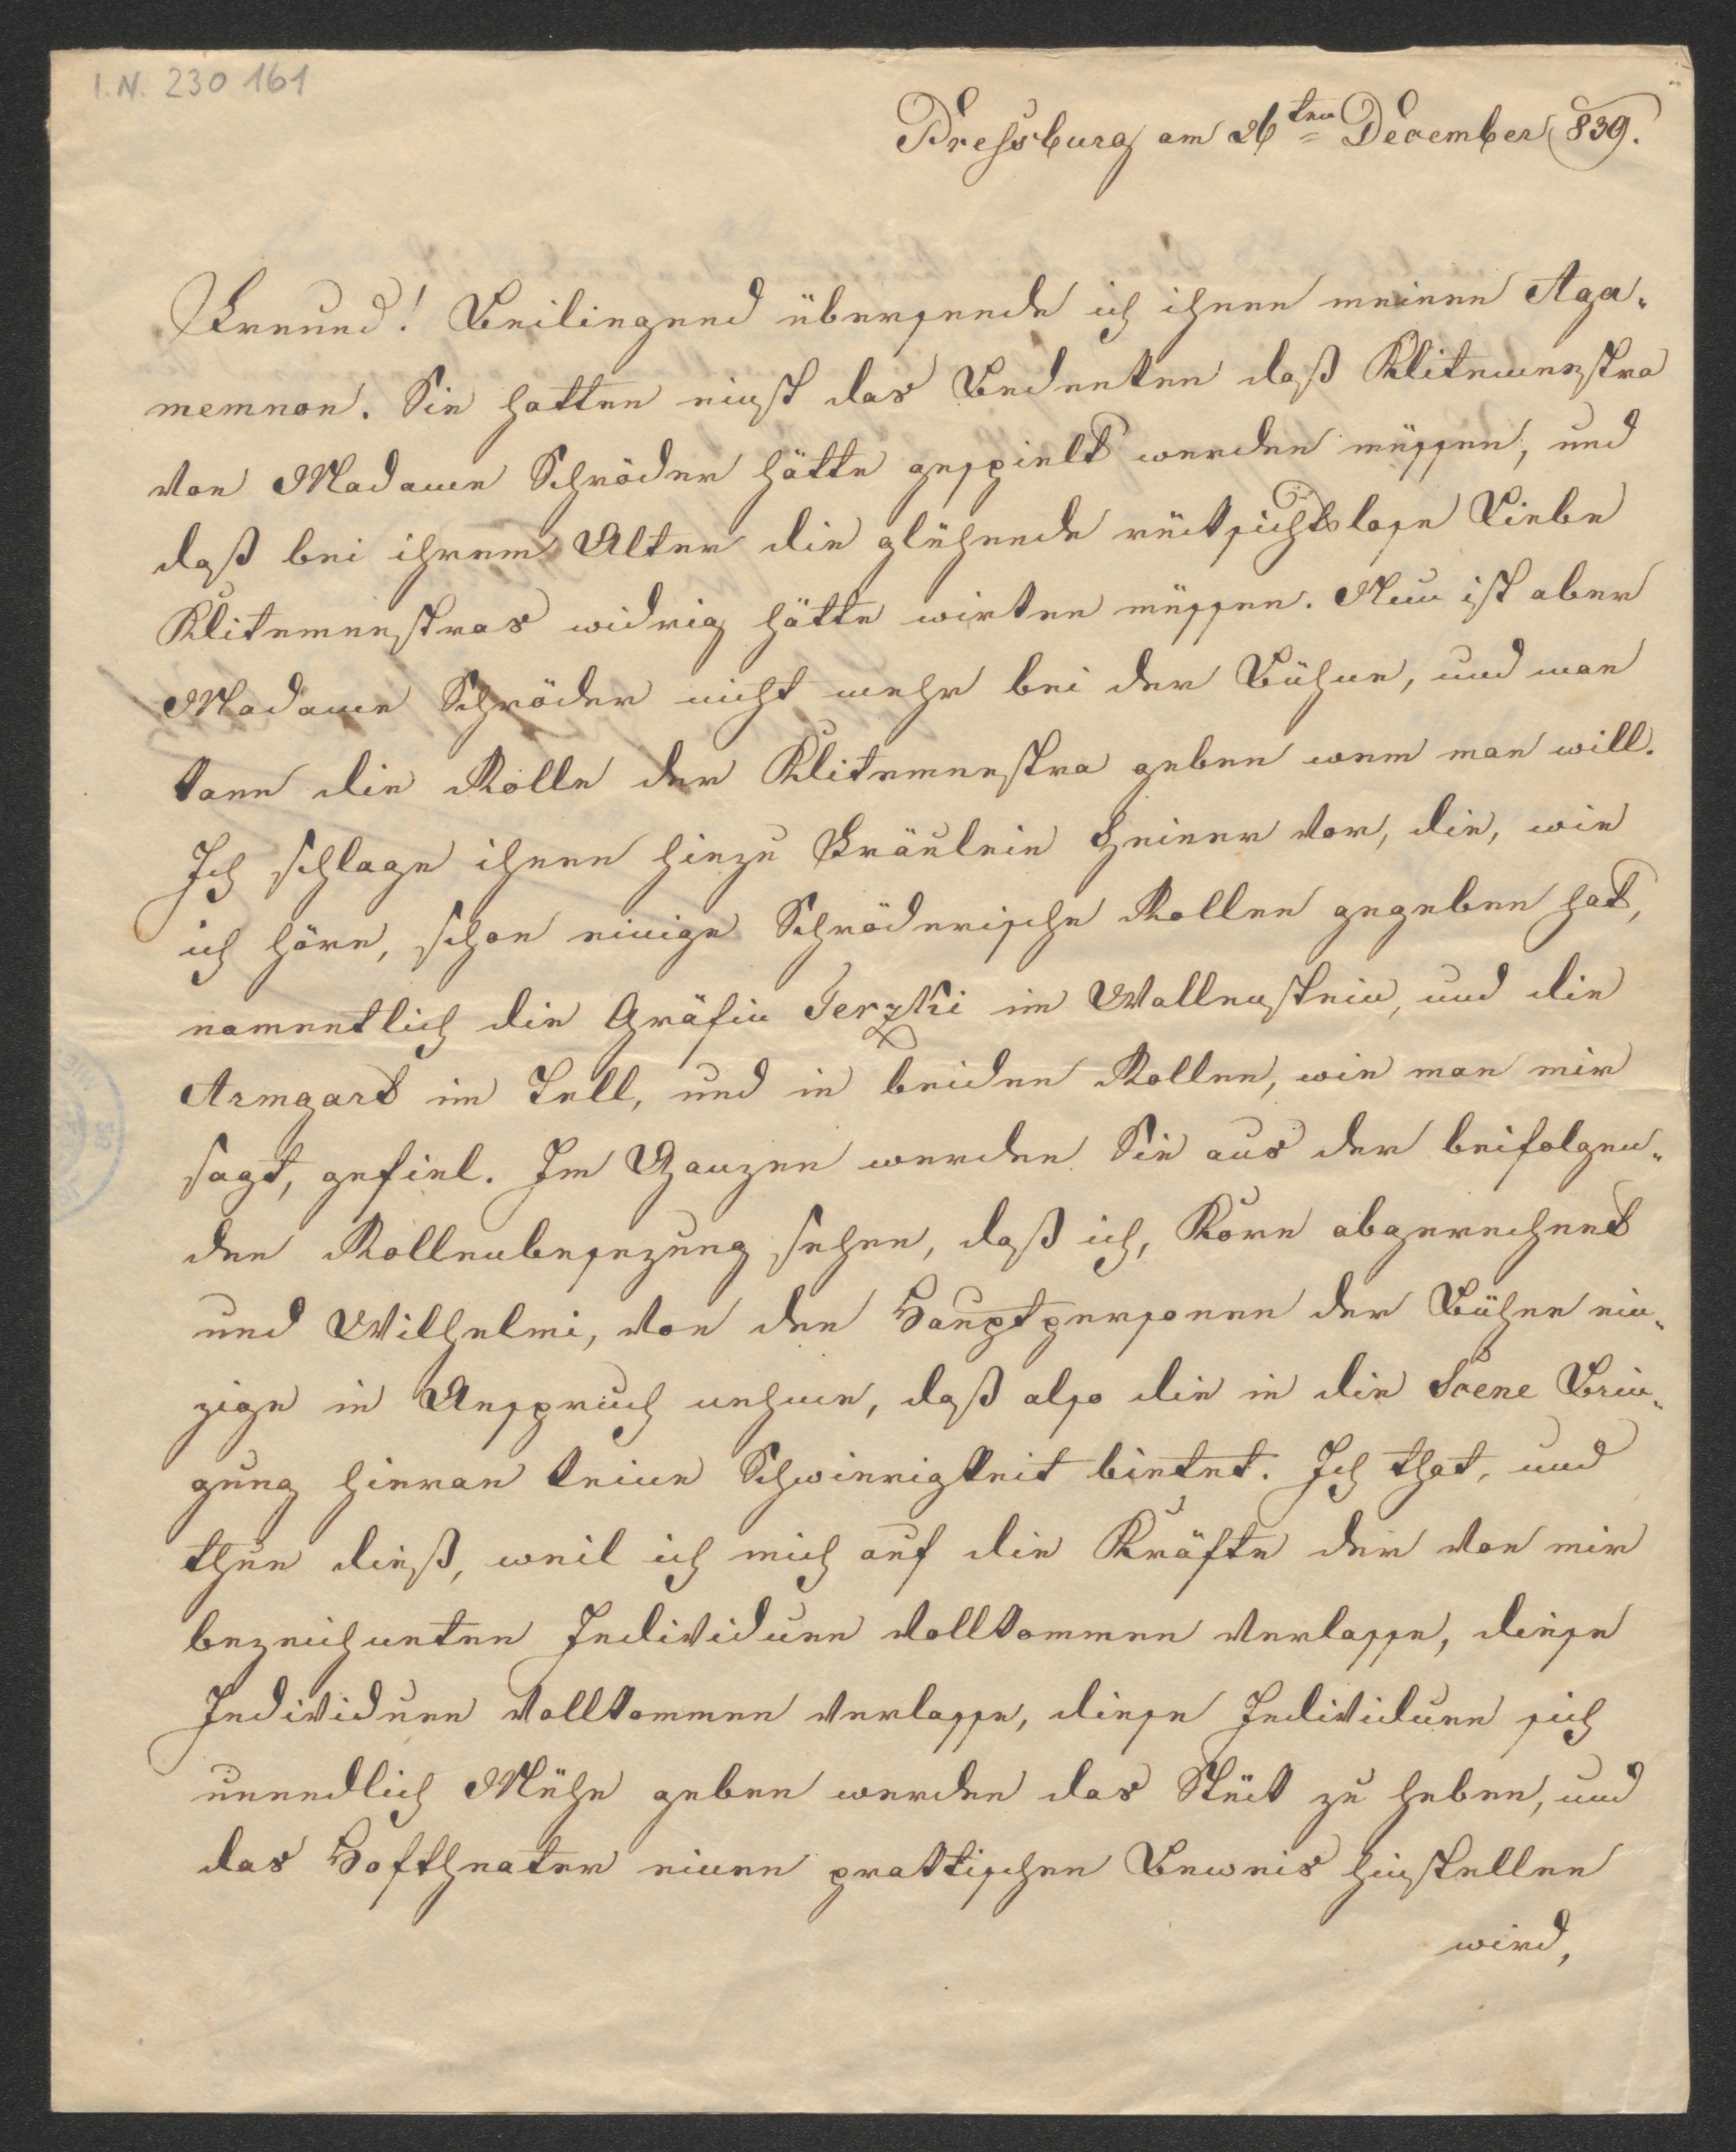 I.N. 230 161
Pressburg am 26ten December 839.
Freund! Beiliegend übersende ich ihnen meinen Aga-
memnon. Sie hatten einst das Bedenken daß Klitemnestra
von Madame Schröder hätte gespielt werden müssen, und
daß bei ihrem Alter die glühende rücksichtslose Liebe
Klitemnestras widrig hätte wirken müssen. Nun ist aber
Madame Schröder nicht mehr bei der Bühne, und man
kann die Rolle der Klitemnestra geben wem man will.
Ich schlage ihnen hiezu Fräulein Heiner vor, die, wie
ich höre, schon einige Schröderische Rollen gegeben hat,
namentlich die Gräfin Terzki im Wallenstein, und die
Armgart im Tell, und in beiden Rollen, wie man mir
sagt, gefiel. Im Ganzen werden Sie aus der beifolgen-
den Rollenbesezung sehen, daß ich, Korn abgerechnet
und Wilhelmi, von den Hauptpersonen der Bühne ein-
zige in Anspruch nehme, daß also die in die Scene Brin-
gung hieran keine Schwierigkeit bietet. Ich that, und
thue dieß, weil ich mich auf die Kräfte der von mir
bezeichneten Individuen vollkommen verlasse, diese
Individuen vollkommen verlasse, diese Individuen sich
unendlich Mühe geben werden das Stück zu heben, und
das Hoftheater einen praktischen Beweis hinstellen
wird,